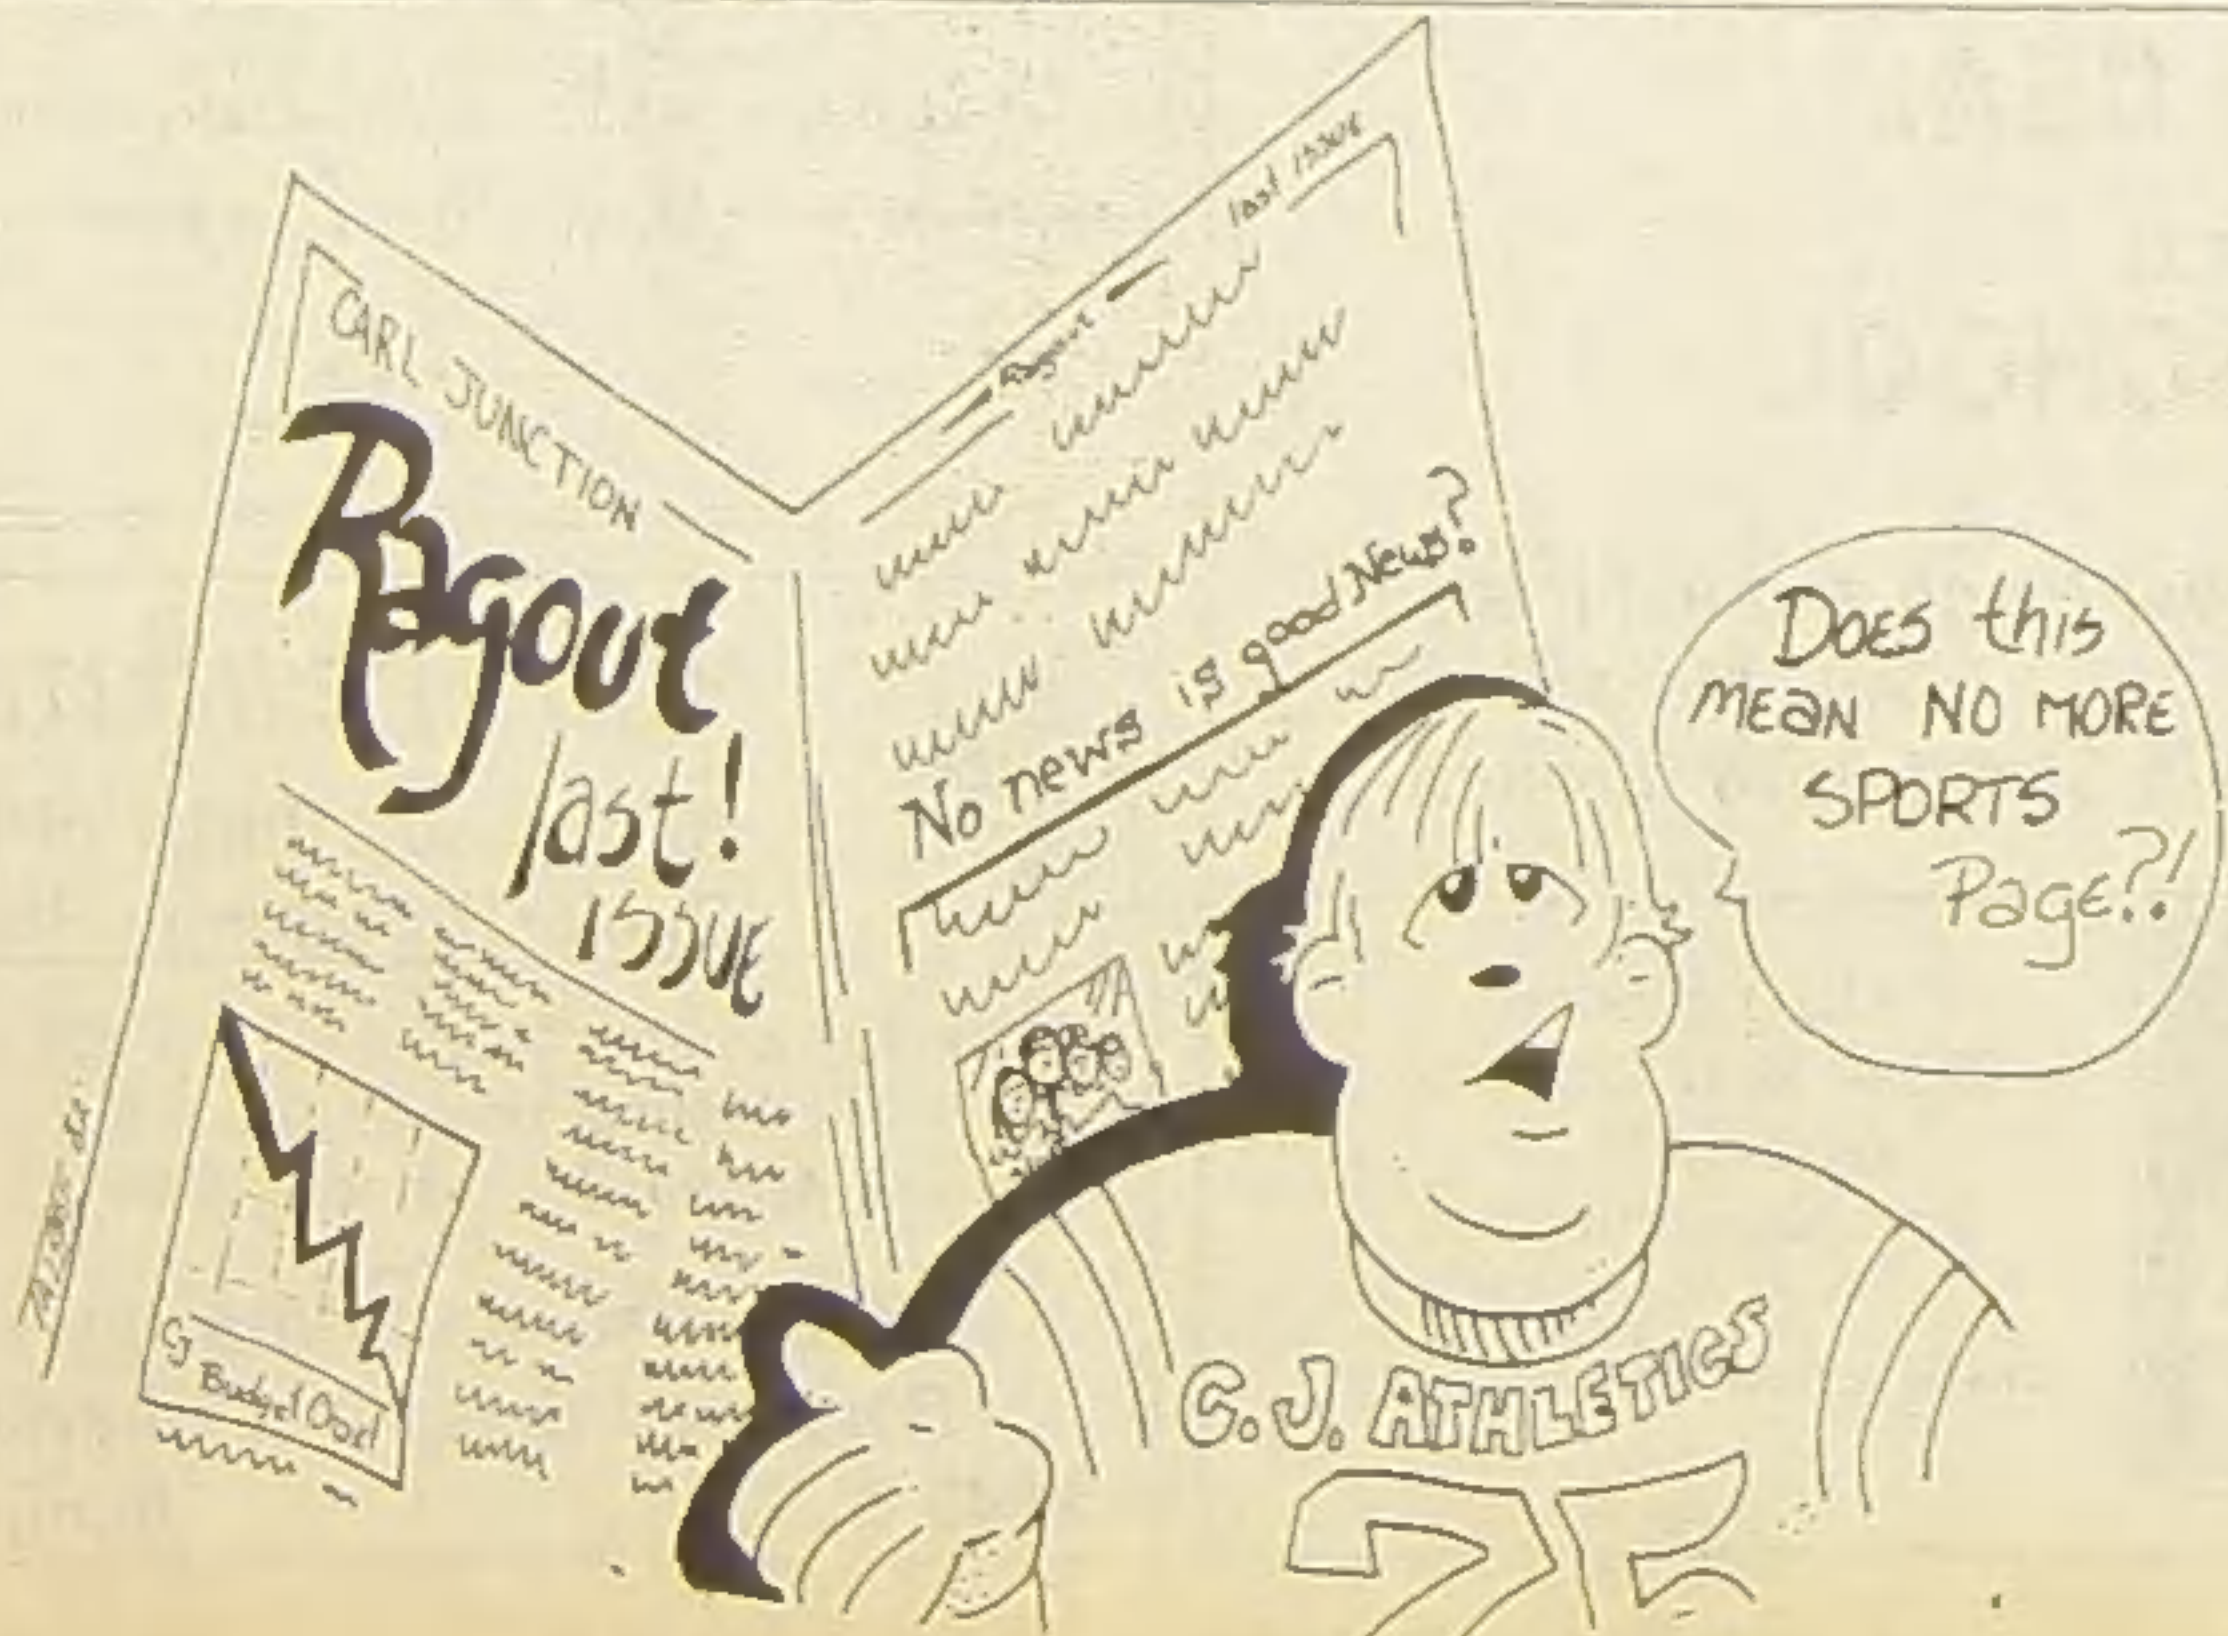 CARL JUNCTION
Ragout
last!
issue
CJ Budget
Ragout
last issue
No news is good News?
Does this
mean no more
SPORTS
Page?!
C.J. ATHLETICS